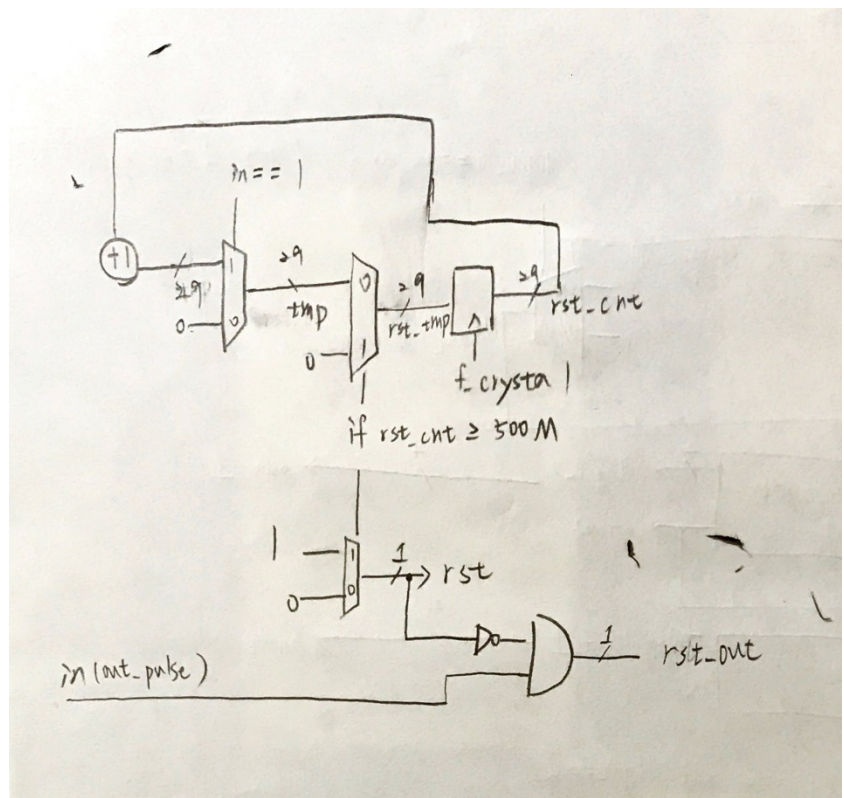 in == 1
+1
29
1
0
0
29
tmp
0
1
0
29
rst_tmp
29
rst_cnt
f_crystal
if rst_cnt ≥ 500M
1
0
1
0
1
rst
in(out_pulse)
1
rst_out